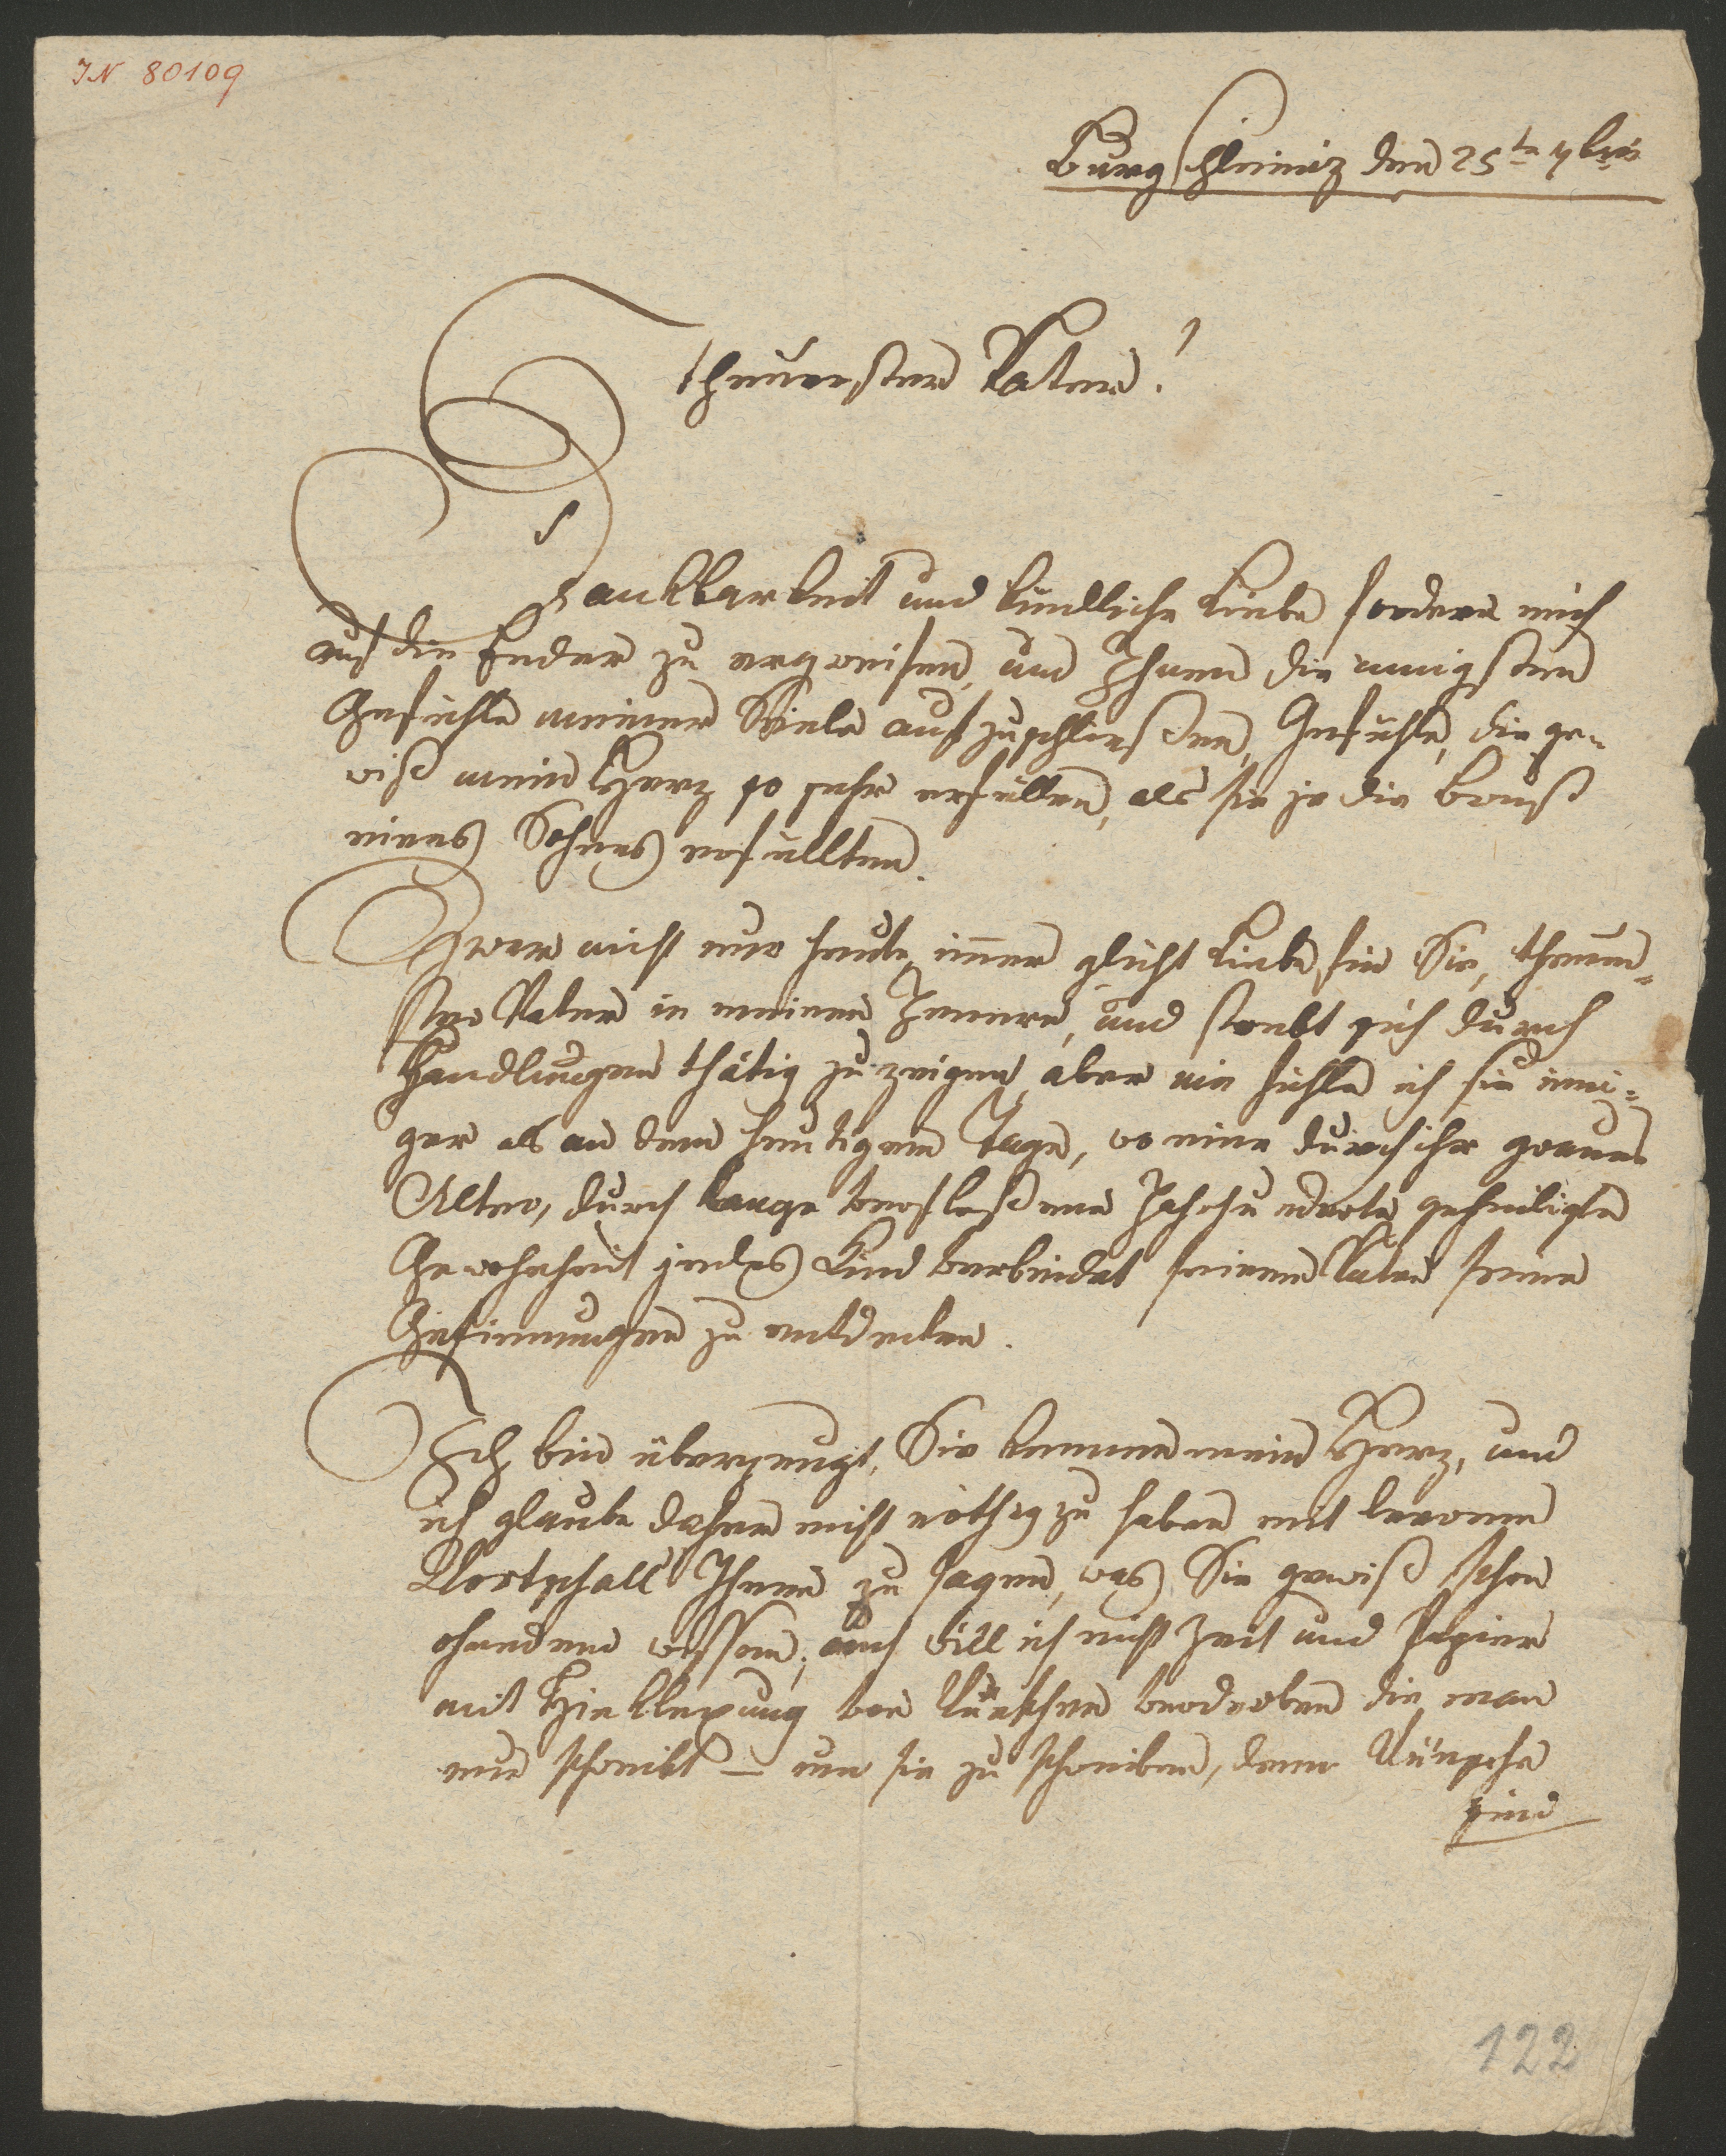 IN 80109
Burgschleiniz den 25te 7bris
theuerster Vater!
Dankbarkeit und kindliche Liebe fordern mich
auf die Feder zu ergreifen, und Ihnen die innigsten
Gefühle meiner Seele aufzuschließen, Gefühle, die ge-
wiß mein Herz so sehr erfüllen, als sie je die Brust
eines Sohnes erfüllten.
Zwar nicht nur heute, immer glüht Liebe für Sie, theuer-
ster Vater in meinem Innern, und strebt sich durch
Handlungen thätig zu zeigen, aber nie fühle ich sie inni-
ger als an dem heutigem Tage, wo eine durch ihr graues
Alter, durch lange verfloßene Jahrhunderte geheiligte
Gewohnheit jedes Kind verbindet seinem Vater seine
Gesinnungen zu entdecken.
Ich bin überzeugt, Sie kennen mein Herz, und
ich glaube daher nicht nöthig zu haben mit leerem
Wortschall Ihnen zu sagen, was Sie gewiß schon
ohnedem wissen; auch will ich nicht Zeit und Papier
mit Hinklexung von Wünschen verderben die man
nur schreibt – um sie zu schreiben, denn Wünsche
sind
122